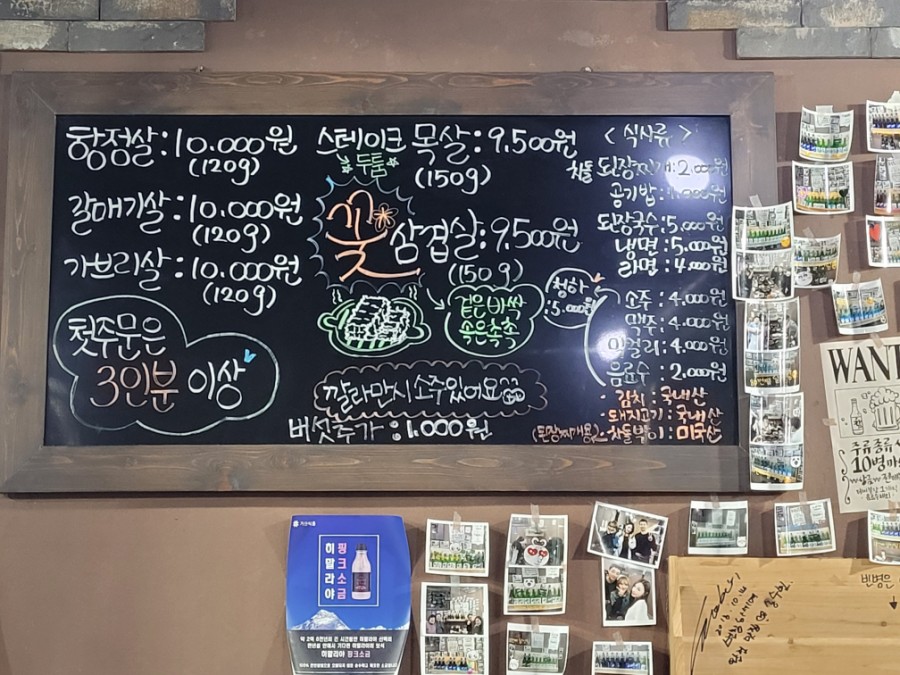 항정살:10.000원
(120g)
갈매기살:10.000원
(120g)
가브리살:10.000원
(120g)
첫주문은
3인분 이상
스테이크 목살:9.500원
두툼
(150g)
꽃삼겹살:9.500원
(150g)
겉은바싹
속은촉촉
청하
:5.000원
깔라만시 소주있어요
버섯추가:1.000원
<식사류>
차돌 된장찌개:2.000원
공기밥:1.000원
된장국수:5.000원
냉면:5.000원
라면:4.000원
소주:4.000원
맥주:4.000원
막걸리:4.000원
음료수:2.000원
김치:국내산
돼지고기:국내산
(된장찌개용)차돌박이:미국산
WANT
주류종류
10병마
히말라야
핑크소금
히말라야 핑크소금
빈병은